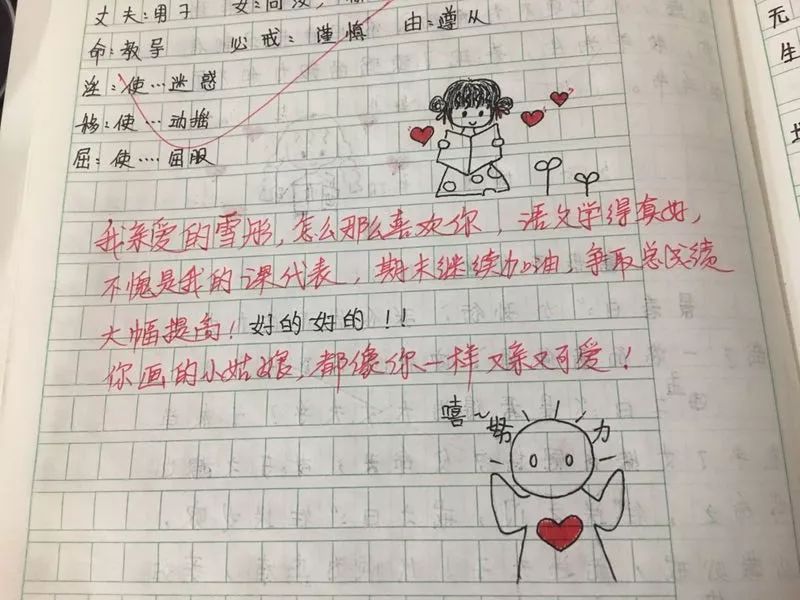 丈夫:男子 女:同汝,
命:教导 必戒:谨慎 由:遵从
淫:使…迷惑
移:使…动摇
屈:使…屈服
我亲爱的雪彤,怎么那么喜欢你,语文学得真好,
不愧是我的课代表,期末继续加油,争取总成绩
大幅提高!好的好的!!!
你画的小姑娘,都像你一样又亲又可爱!
嘻~努力
无
生